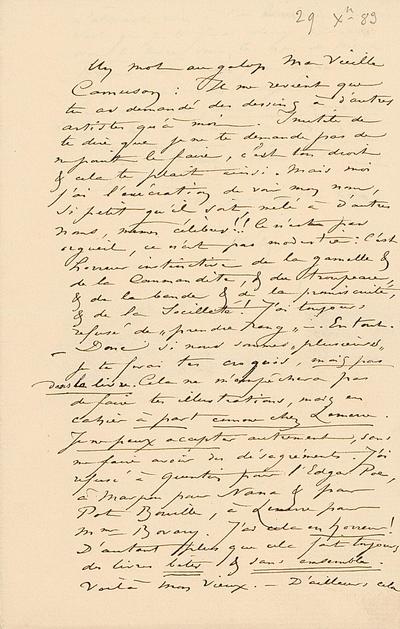 29 Xbre 89
Un mot au galop Ma Vieille
Camuson : Il me revient que
tu as demandé des dessins à d'autres
artistes qu'à moi. Inutile de
te dire que je ne te demande pas de
ne point le faire, c'est ton droit
& cela te plait ainsi. Mais moi
j'ai l'exécration de voir mon nom,
si petit qu'il soit, mêlé à d'autres
noms, mêmes célèbres!! Ce n'est pas
orgueil, ce n'est pas modestie : c'est
horreur instinctive de la gamelle &
de la Commandite, & du troupeau,
& de la bande & de la promiscuité,
& de la Société! J'ai toujours
refusé de „prendre rang" – . En tout.
– Donc si nous sommes „plusieurs"
je te ferai tes croquis, mais pas
dans le livre. Cela ne m'empêchera pas
de faire tes illustrations, mais en
cahier à part comme chez Lemerre.
Je ne peux accepter autrement, sans
me faire avoir des désagréments. J'ai
refusé à Quantin pour l'Edgar Poe,
à Marpon pour Nana & pour
Pot Bouille, à Lemerre pour
Mme Bovary. J'ai cela en horreur!
D'autant plus que cela fait toujours
des livres bêtes & sans ensemble.
Voilà mon Vieux. – D'ailleurs cela